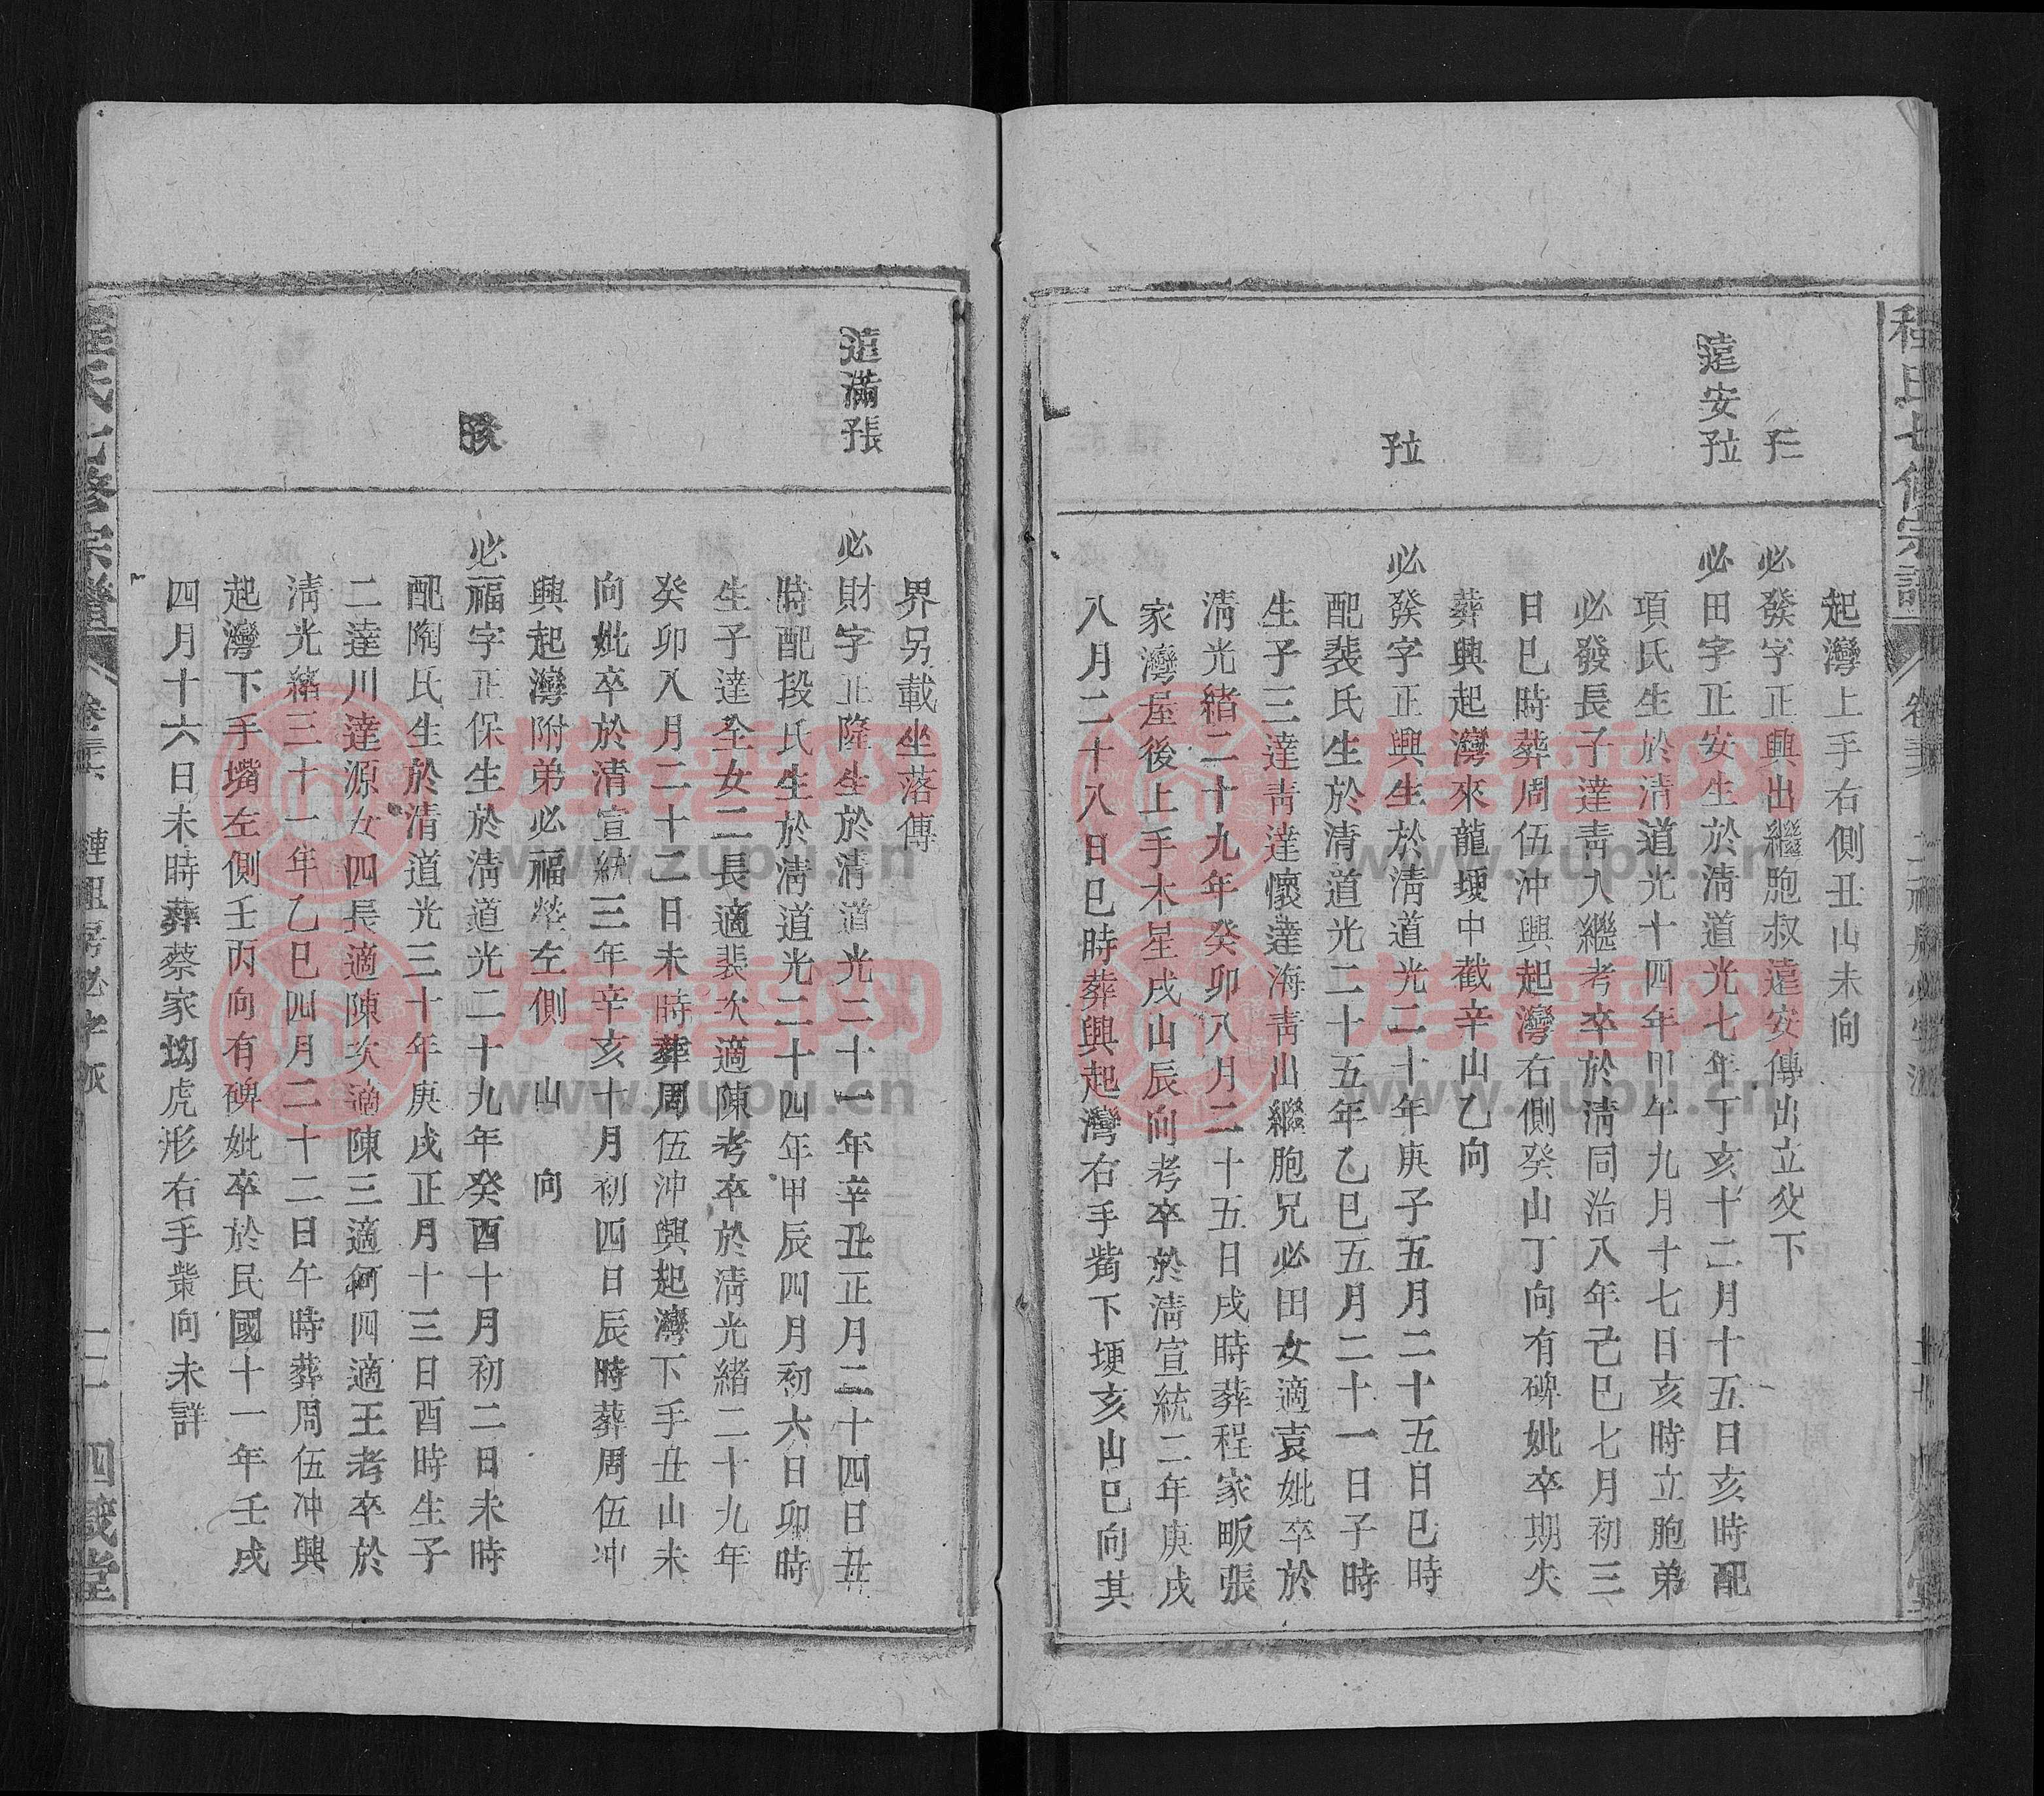 程氏七修宗譜
起灣上手右側丑山未向
子二
必發字正興出繼胞叔遠安傳出立父下
遠安子立
必田字正安生於清道光七年丁亥十二月十五日亥時配
項氏生於清道光十四年甲午九月十七日亥時立胞弟
必發長子達青入繼考卒於清同治八年己巳七月初三
日巳時葬周伍沖興起灣右側癸山丁向有碑妣卒期失
葬興起灣來龍埂中截辛山乙向
子立
必發字正興生於清道光二十年庚子五月二十五日巳時
配裴氏生於清道光二十五年乙巳五月二十一日子時
生子三達青達懷達海青出繼胞兄必田女適袁妣卒於
清光緒二十九年癸卯八月二十五日戌時葬程家畈張
家灣屋後上手木星戌山辰向考卒於清宣統二年庚戌
八月二十八日巳時葬興起灣右手嘴下埂亥山巳向其
界另載坐落傳
遠滿子長
必財字正隆生於清道光二十一年辛丑正月二十四日丑
時配段氏生於清道光二十四年甲辰四月初六日卯時
生子達全女二長適裴次適陳考卒於清光緒二十九年
癸卯八月二十二日未時葬周伍沖興起灣下手丑山未
向妣卒於清宣統三年辛亥十月初四日辰時葬周伍沖
興起灣附弟必福塋左側 山 向
必福字正保生於清道光二十九年癸酉十月初二日未時
配陶氏生於清道光三十年庚戌正月十三日酉時生子
二達川達源女四長適陳次適陳三適何四適王考卒於
清光緒三十一年乙巳四月二十二日午時葬周伍沖興
起灣下手嘴左側壬丙向有碑妣卒於民國十一年壬戌
四月十六日未時葬蔡家坳虎形右手柴向未詳
程氏七修宗譜 鏈祖房必字派 四箴堂